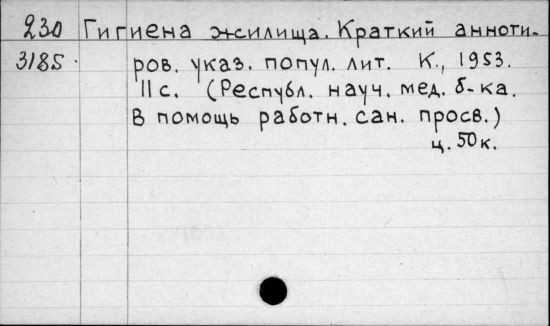 230 Гигиена жилища. Краткий анноти-
3185. ров. указ. попул. лит. К., 1953.
11с. (Республ. науч. мед. б-ка.
В помощь работн. сан. просв.)
ц. 50к.